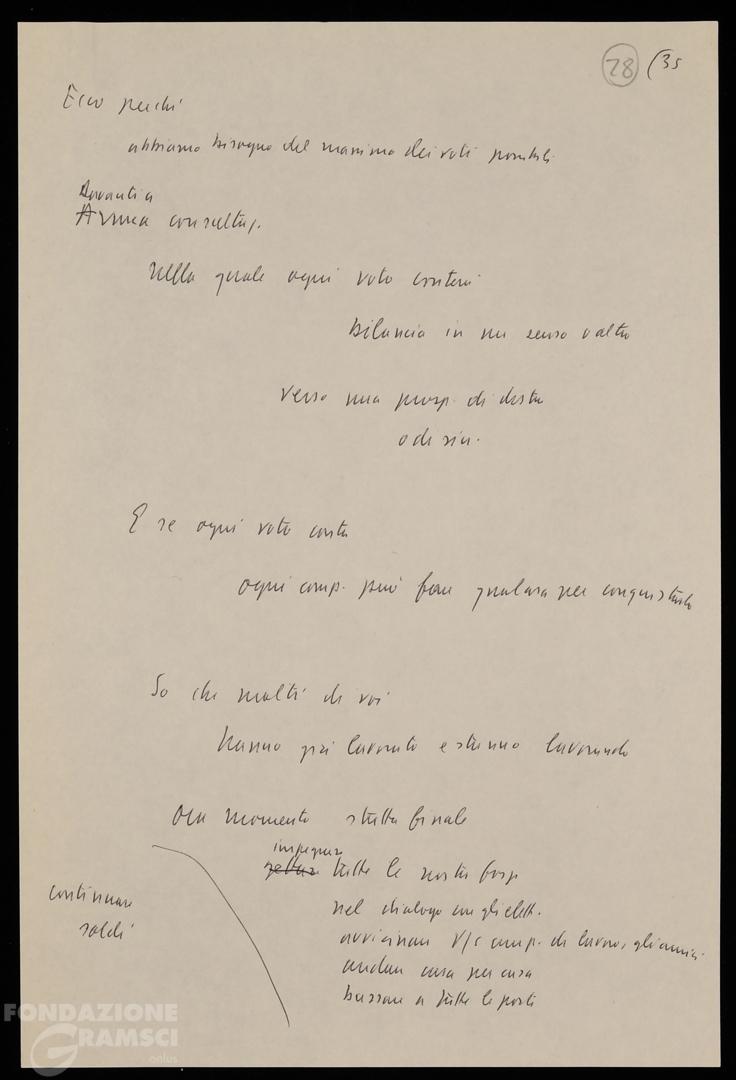 28 (35
Ecco perché
abbiamo bisogno del massimo dei voti possibili
Davanti a
consultaz.
nella quale ogni voto conterà
bilancia in un senso o altro
verso una prosp. di destra
o di sin.
E se ogni voto conta
ogni comp. può fare qualcosa per conquistarlo
So che molti di voi
hanno già lavorato e stanno lavorando
ora momento stretta finale
impegnare
tutte le nostre forze
nel dialogo con gli elett.
avvicinare V/s comp. di lavoro, gli amici
andare casa per casa
bussare a tutte le porte
continuare
soldi
FONDAZIONE
GRAMSCI
onlus